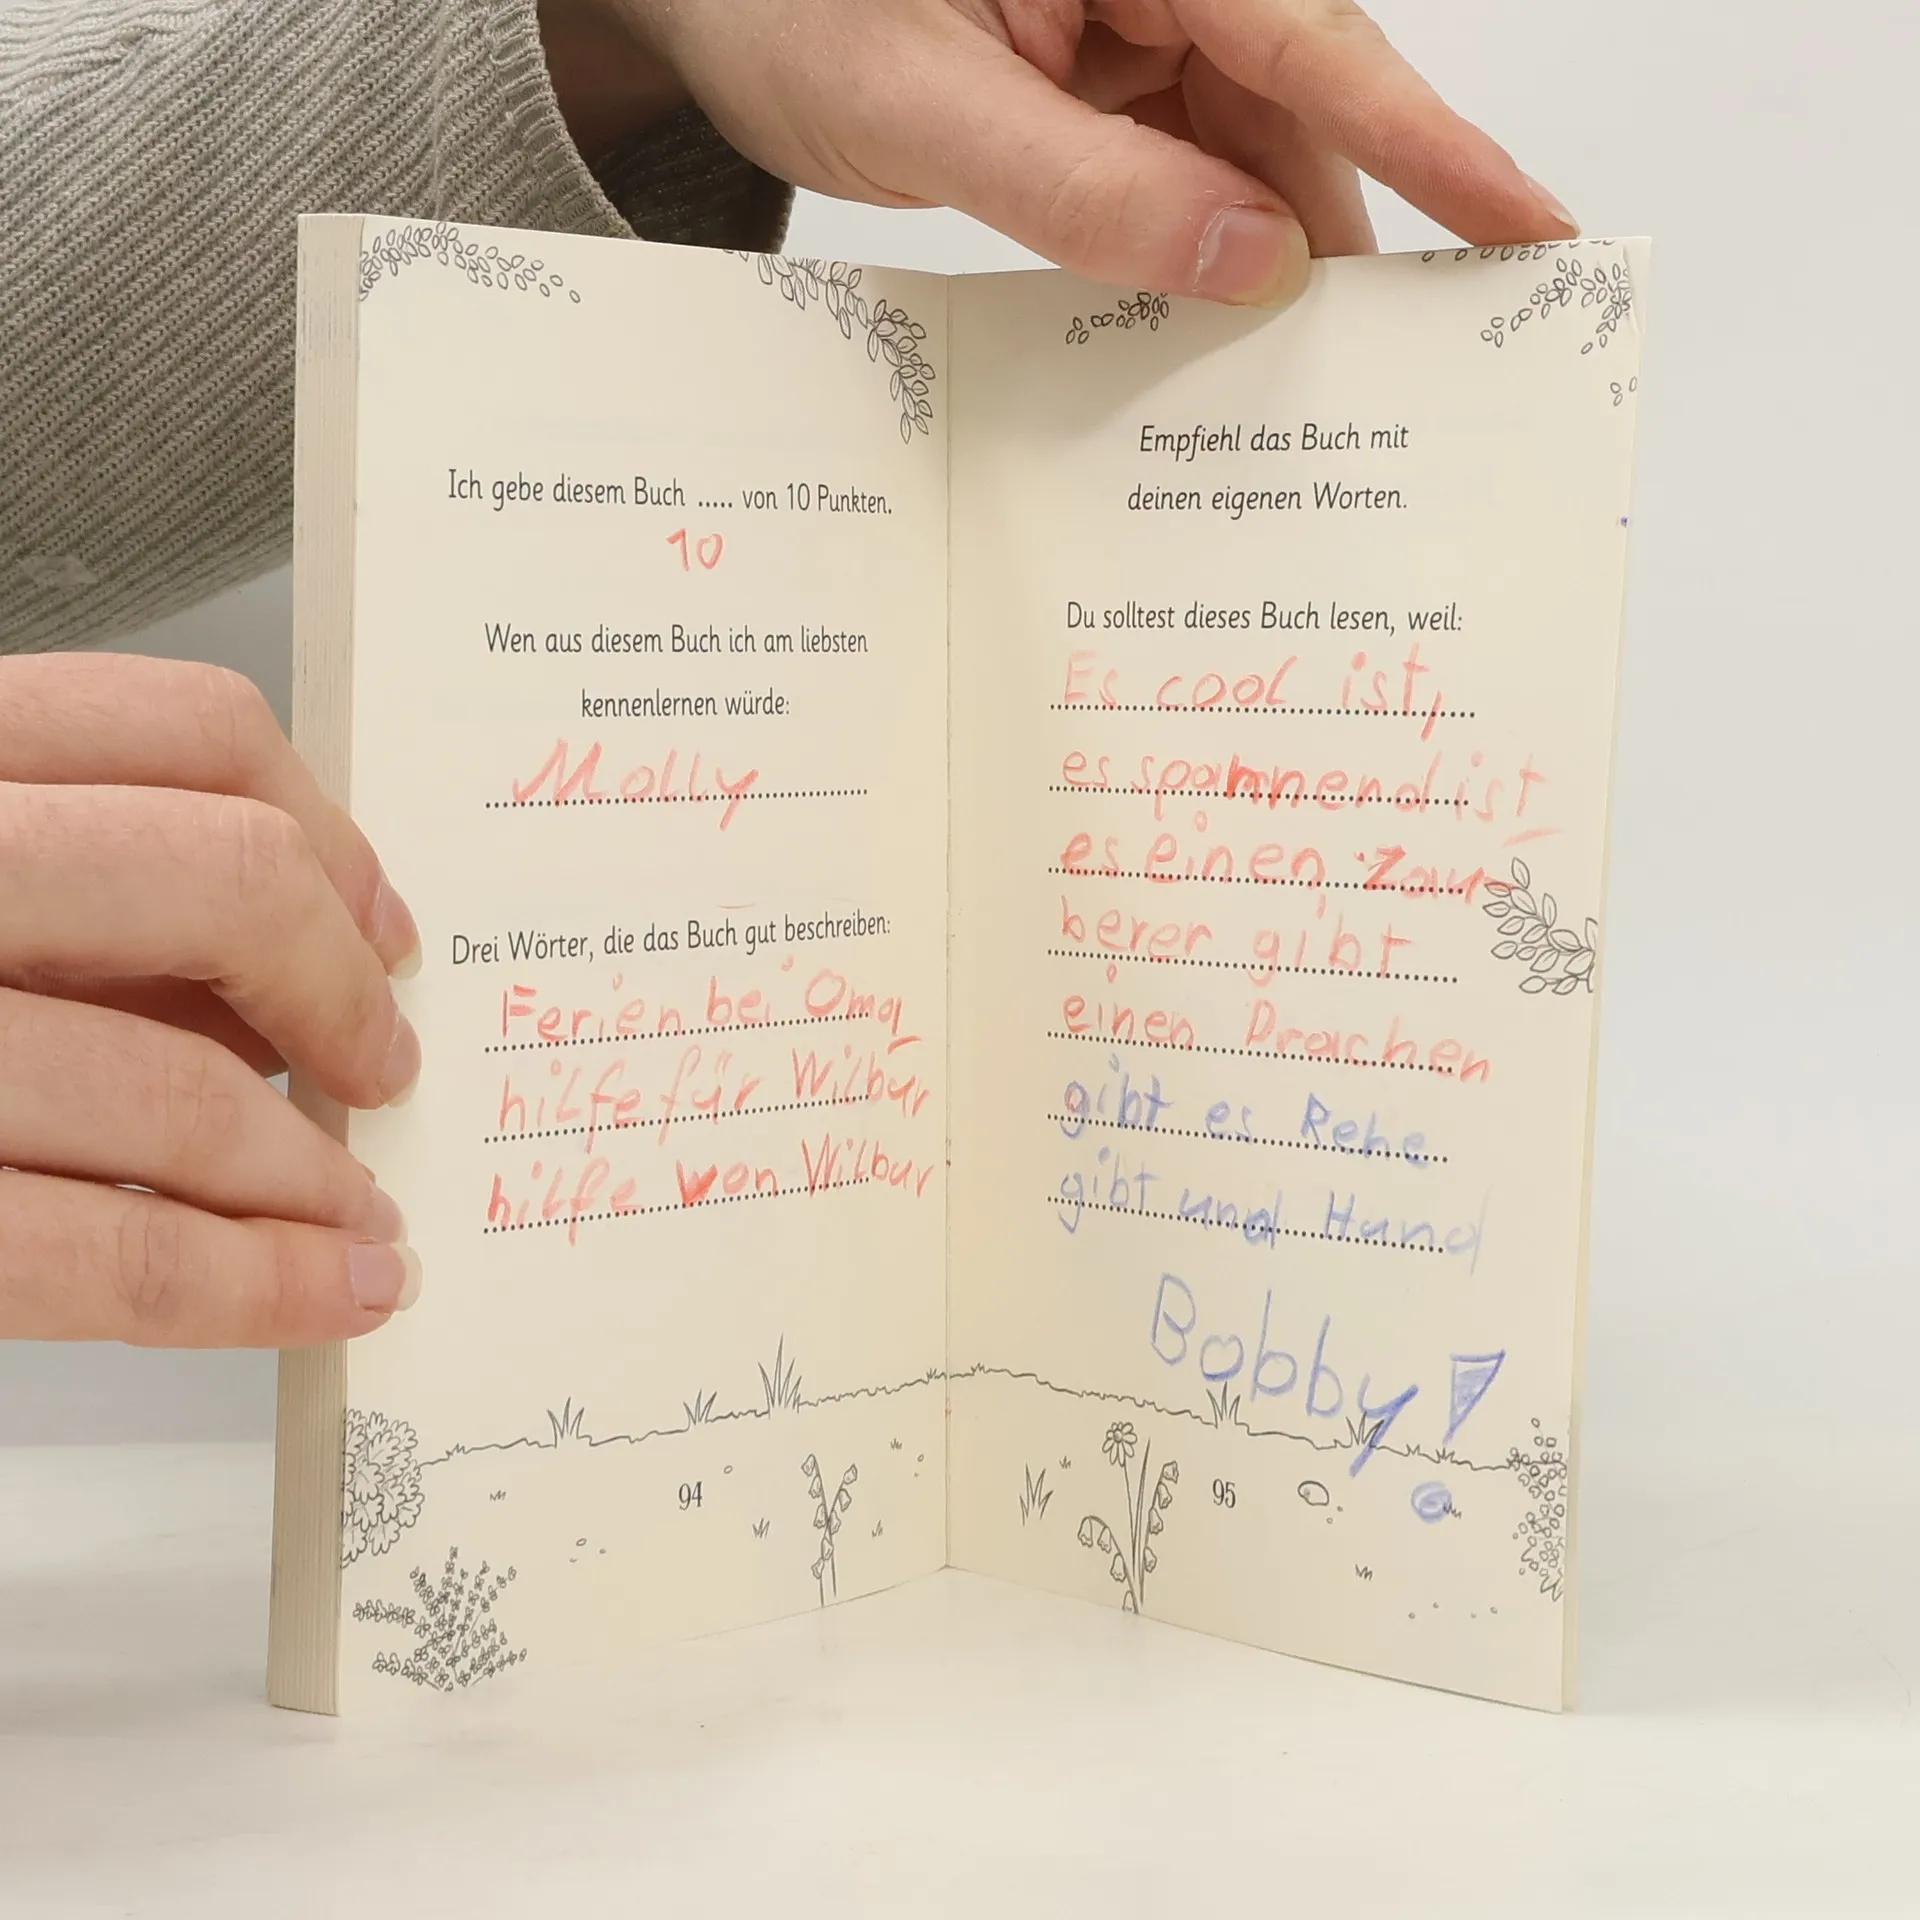 Ich gebe diesem Buch ..... von 10 Punkten.
10
Wen aus diesem Buch ich am liebsten
kennenlernen würde:
Molly
Drei Wörter, die das Buch gut beschreiben:
Ferien bei Oma
hilfe für Wilbur
hilfe von Wilbur
94
Empfiehl das Buch mit
deinen eigenen Worten.
Du solltest dieses Buch lesen, weil:
Es cool ist,
es spannend ist
es einen Zau-
berer gibt
einen Drachen
gibt es Rehe
gibt und Hund
Bobby!
95